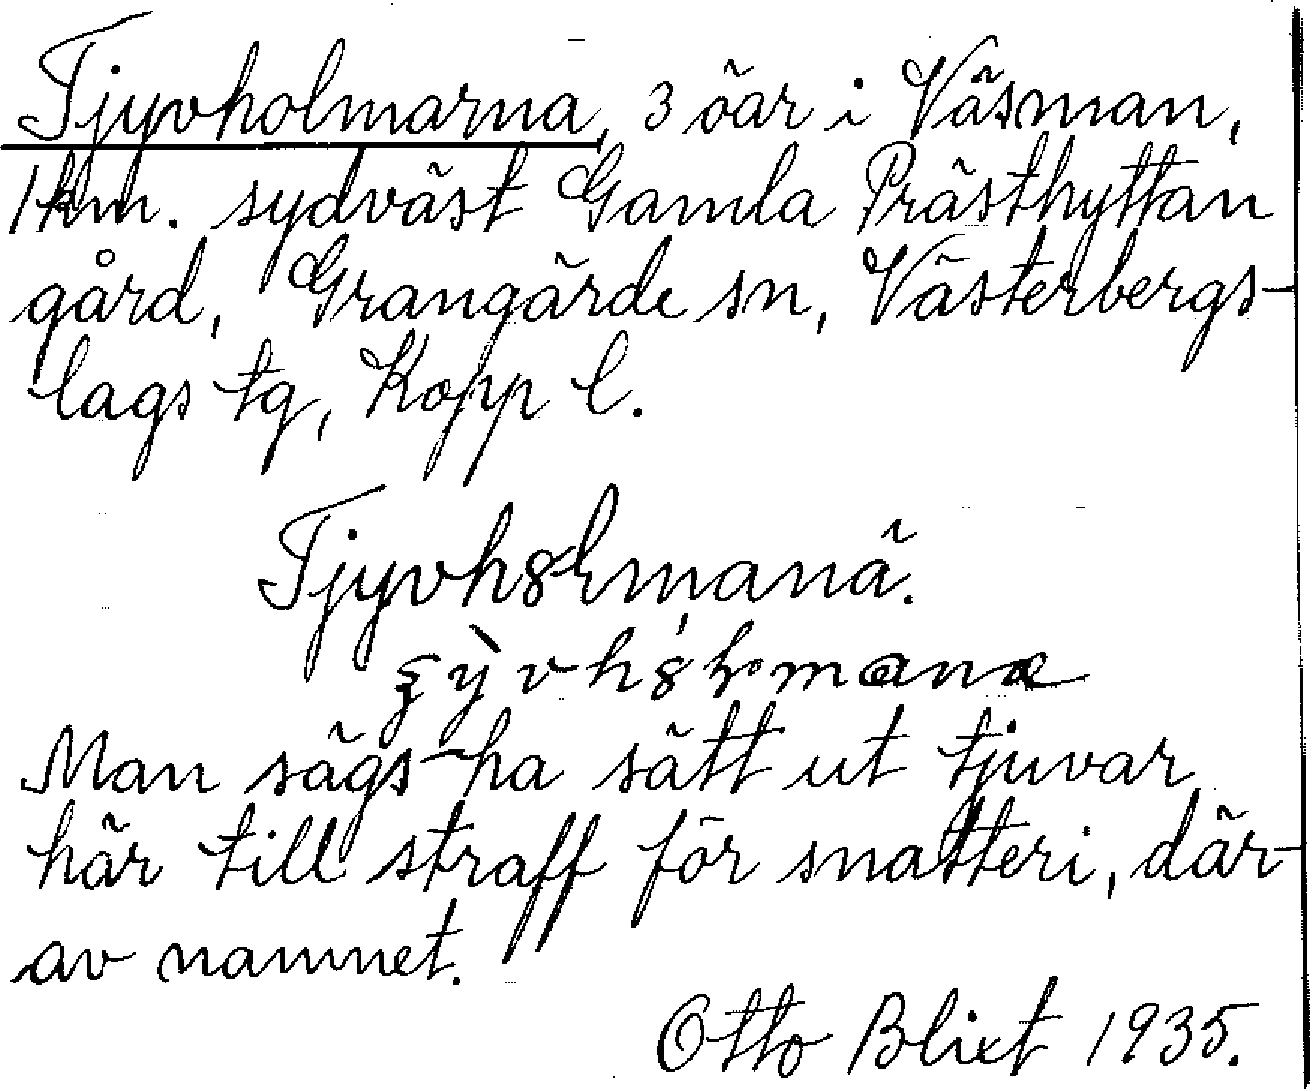 Tjyvholmarna, 3 öar i Väsman,
1 km. sydväst Gamla Prästhyttan
gård, Grangärde sn, Västerbergs-
lags tg, Kopp l.
Man sägs ha sätt ut tjuvar
här till straff för snatteri, där-
av namnet.
Otto Blixt 1935.